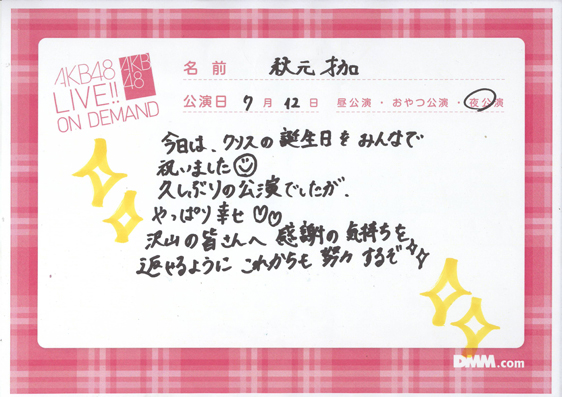 AKB48
LIVE!!
ON DEMAND
AKB
48
名前 秋元才加
公演日 7月12日 昼公演・おやつ公演・夜公演
今日は、クリスの誕生日をみんなで
祝いました
久しぶりの公演でしたが、
やっぱり幸せ♡♡
沢山の皆さんへ感謝の気持ちを
返せるようにこれからも努々するぞ
DMM.com